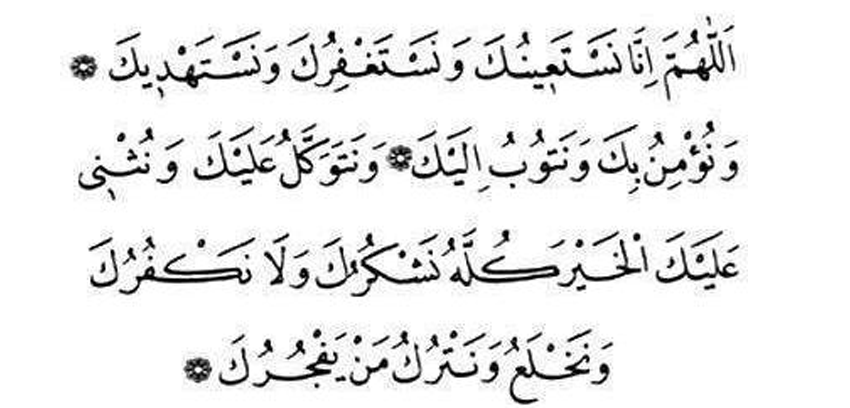 اَللّٰهُمَّ اِنَّا نَسْتَعٖينُكَ وَ نَسْتَغْفِرُكَ وَ نَسْتَهْدٖيكَ ۞
وَ نُؤْمِنُ بِكَ وَ نَتُوبُ اِلَيْكَ ۞ وَ نَتَوَكَّلُ عَلَيْكَ وَ نُثْنٖى
عَلَيْكَ الْخَيْرَ كُلَّهُ نَشْكُرُكَ وَ لَا نَكْفُرُكَ
وَ نَخْلَعُ وَ نَتْرُكُ مَنْ يَفْجُرُكَ ۞